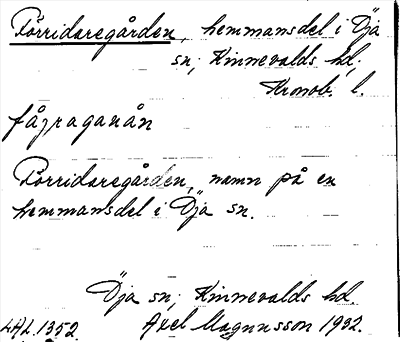 Förridaregården, hemmansdel i Öja
sn; Kinnevalds hd.
Kronob. l.
fåjraganån
Förridaregården, namn på en
hemmansdel i Öja sn.
Öja sn; Kinnevalds hd.
LAL. 1352. Axel Magnusson 1932.